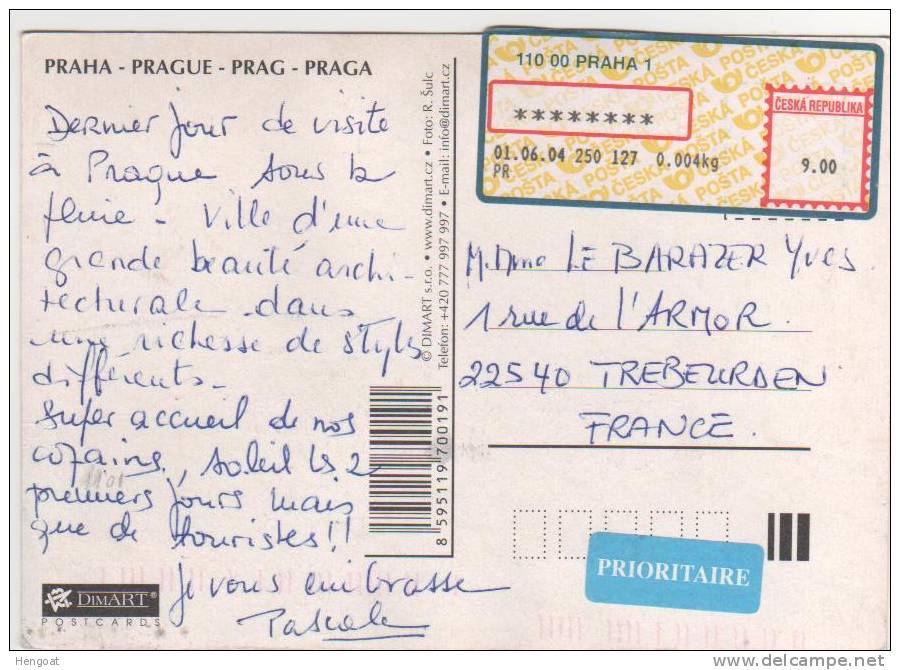 PRAHA - PRAGUE - PRAG - PRAGA
Dernier jour de visite
à Prague sous la
pluie - Ville d'une
grande beauté archi-
tecturale dans
une richesse de styles
différents -
Super accueil de nos
copains, soleil les 2
premiers jours mais
que de touristes !!
Je vous embrasse
Pascale
DIMART®
POSTCARDS
© DIMART s.r.o. • www.dimart.cz • Foto: R. Šulc
Telefon: +420 777 997 997 • E-mail: info@dimart.cz
8 595119 700191
110 00 PRAHA 1
********
01.06.04 250 127 0.004kg
PR
ČESKÁ REPUBLIKA
9.00
ČESKÁ POŠTA
M. Dme LE BARAZER Yves
1 rue de l'ARMOR.
22540 TREBEURDEN
FRANCE.
PRIORITAIRE
Hengoat
www.delcampe.net